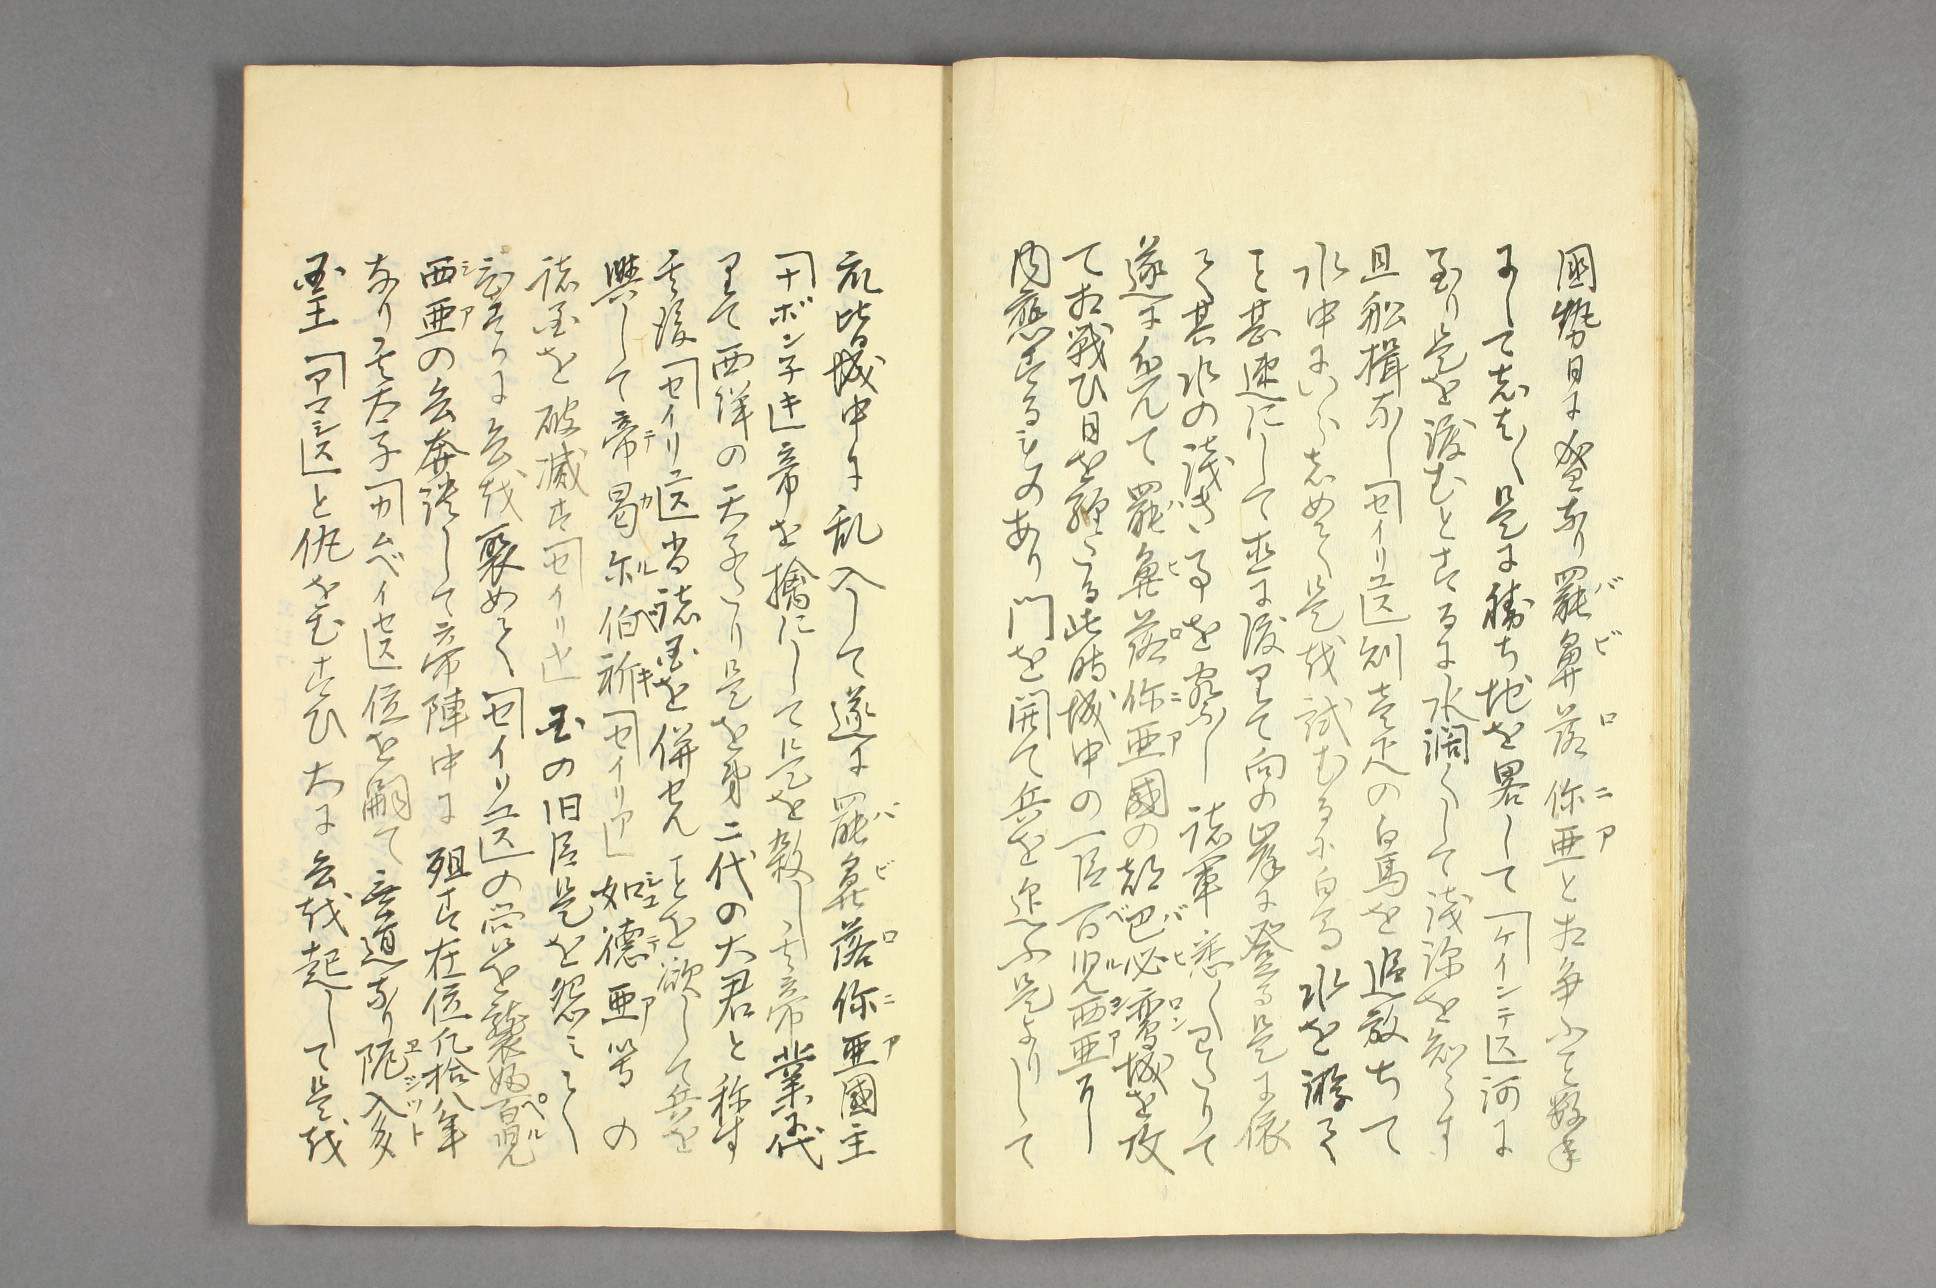 國勢日に盛なり罷鼻落你亜と相争ふこと数年
にして志ばしば是に勝ち地を畧して「ケインデス」河に
至り是を渡むとするに水濶くして浅深を知らす
且船楫なし「セイリュス」則壹疋の白馬を追放ちて
水中にいらしめて是を試むるに白馬水を游て
こと甚速にして直に渡りて向の岸に登る是に依
て其水の浅き事を察し諸軍悉くわたりて
遂に進んて罷鼻落你亜國の都巴必鸞城を攻
て相戦ひ日を経たる此時城中の一臣百児西亜に
内應するものあり門を開て兵を迎ふ是よりして
兵皆城中に乱入して遂に罷鼻落你亜國主
「ナボンデキ」帝を擒にして是を殺し其帝業に代
りて西洋の天子たり是を第二代の大君と称す
其後「セイリュス」尚諸国を併せんことを欲して兵を
興して帝曷尓伯祈「セイリア」如德亜等の
諸国を破滅す「セイリア」国の旧臣是を怨みて
ひそかに兵を聚めて「セイリュス」の営を襲ふ百児
西亜の兵奔潰して帝陣中に殂す在位化拾八年
なり其太子「カムベイセス」位を嗣て無道なり阨入多
国王「アマシス」と仇をむすひ大に兵を起して是を